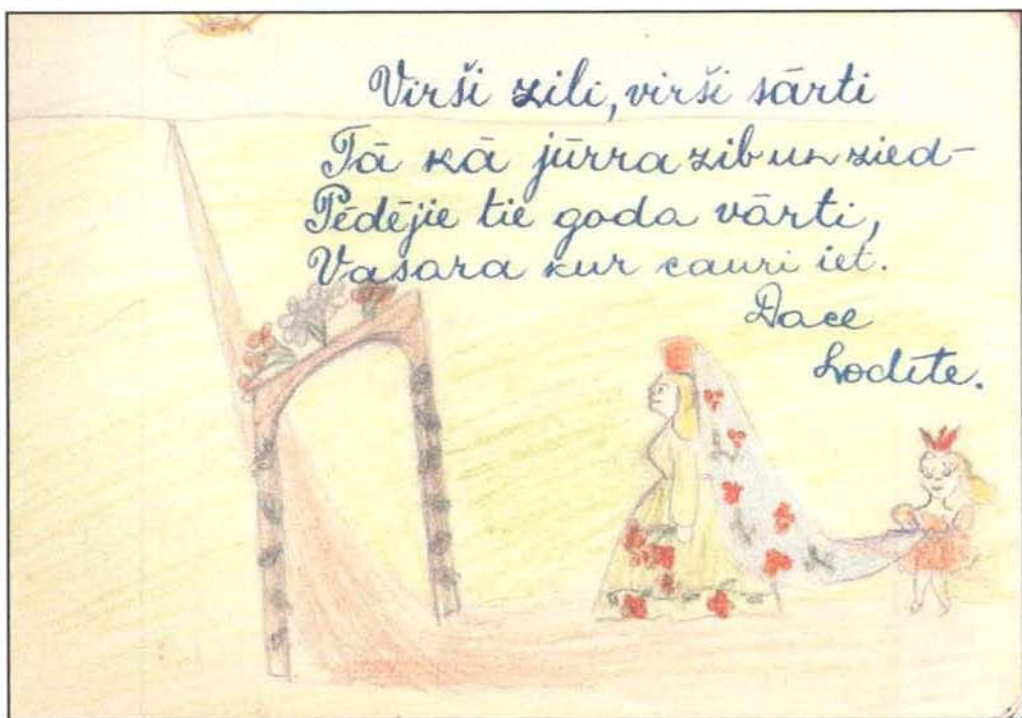 Virši zili, virši sārti
Tā kā jūrra zib un zied-
Pēdējie tie goda vārti,
Vasara kur cauri iet.
Dace
Lodīte.